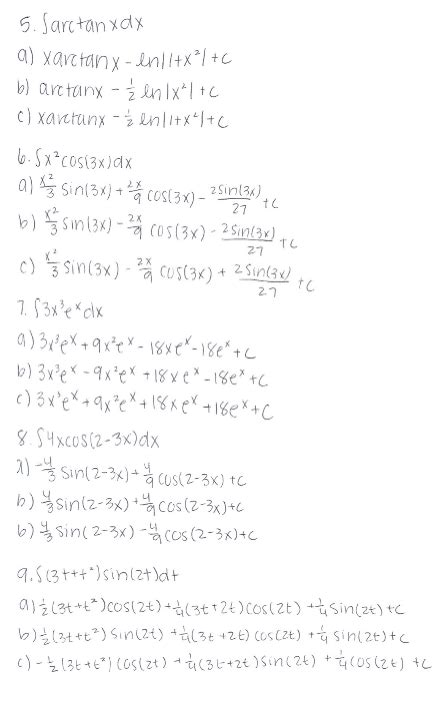 5. ∫arctanxdx
a) xarctanx - ln|1+x²| + c
b) arctanx - 1/2 ln|x²| + c
c) xarctanx - 1/2 ln|1+x²| + c
6. ∫x²cos(3x)dx
a) x²/3 sin(3x) + 2x/9 cos(3x) - 2sin(3x)/27 + c
b) x²/3 sin(3x) - 2x/9 cos(3x) - 2sin(3x)/27 + c
c) x²/3 sin(3x) - 2x/9 cos(3x) + 2sin(3x)/27 + c
7. ∫3x³eˣdx
a) 3x³eˣ + 9x²eˣ - 18xeˣ - 18eˣ + c
b) 3x³eˣ - 9x²eˣ + 18xeˣ - 18eˣ + c
c) 3x³eˣ + 9x²eˣ + 18xeˣ + 18eˣ + c
8. ∫4xcos(2-3x)dx
a) -4/3 sin(2-3x) + 4/9 cos(2-3x) + c
b) 4/3 sin(2-3x) + 4/9 cos(2-3x) + c
b) 4/3 sin(2-3x) - 4/9 cos(2-3x) + c
9. ∫(3t+t²)sin(2t)dt
a) 1/2 (3t+t²)cos(2t) + 1/4 (3t+2t)cos(2t) + 1/4 sin(2t) + c
b) 1/2 (3t+t²)sin(2t) + 1/4 (3t+2t)cos(2t) + 1/4 sin(2t) + c
c) -1/2 (3t+t²)cos(2t) + 1/4 (3t+2t)sin(2t) + 1/4 cos(2t) + c